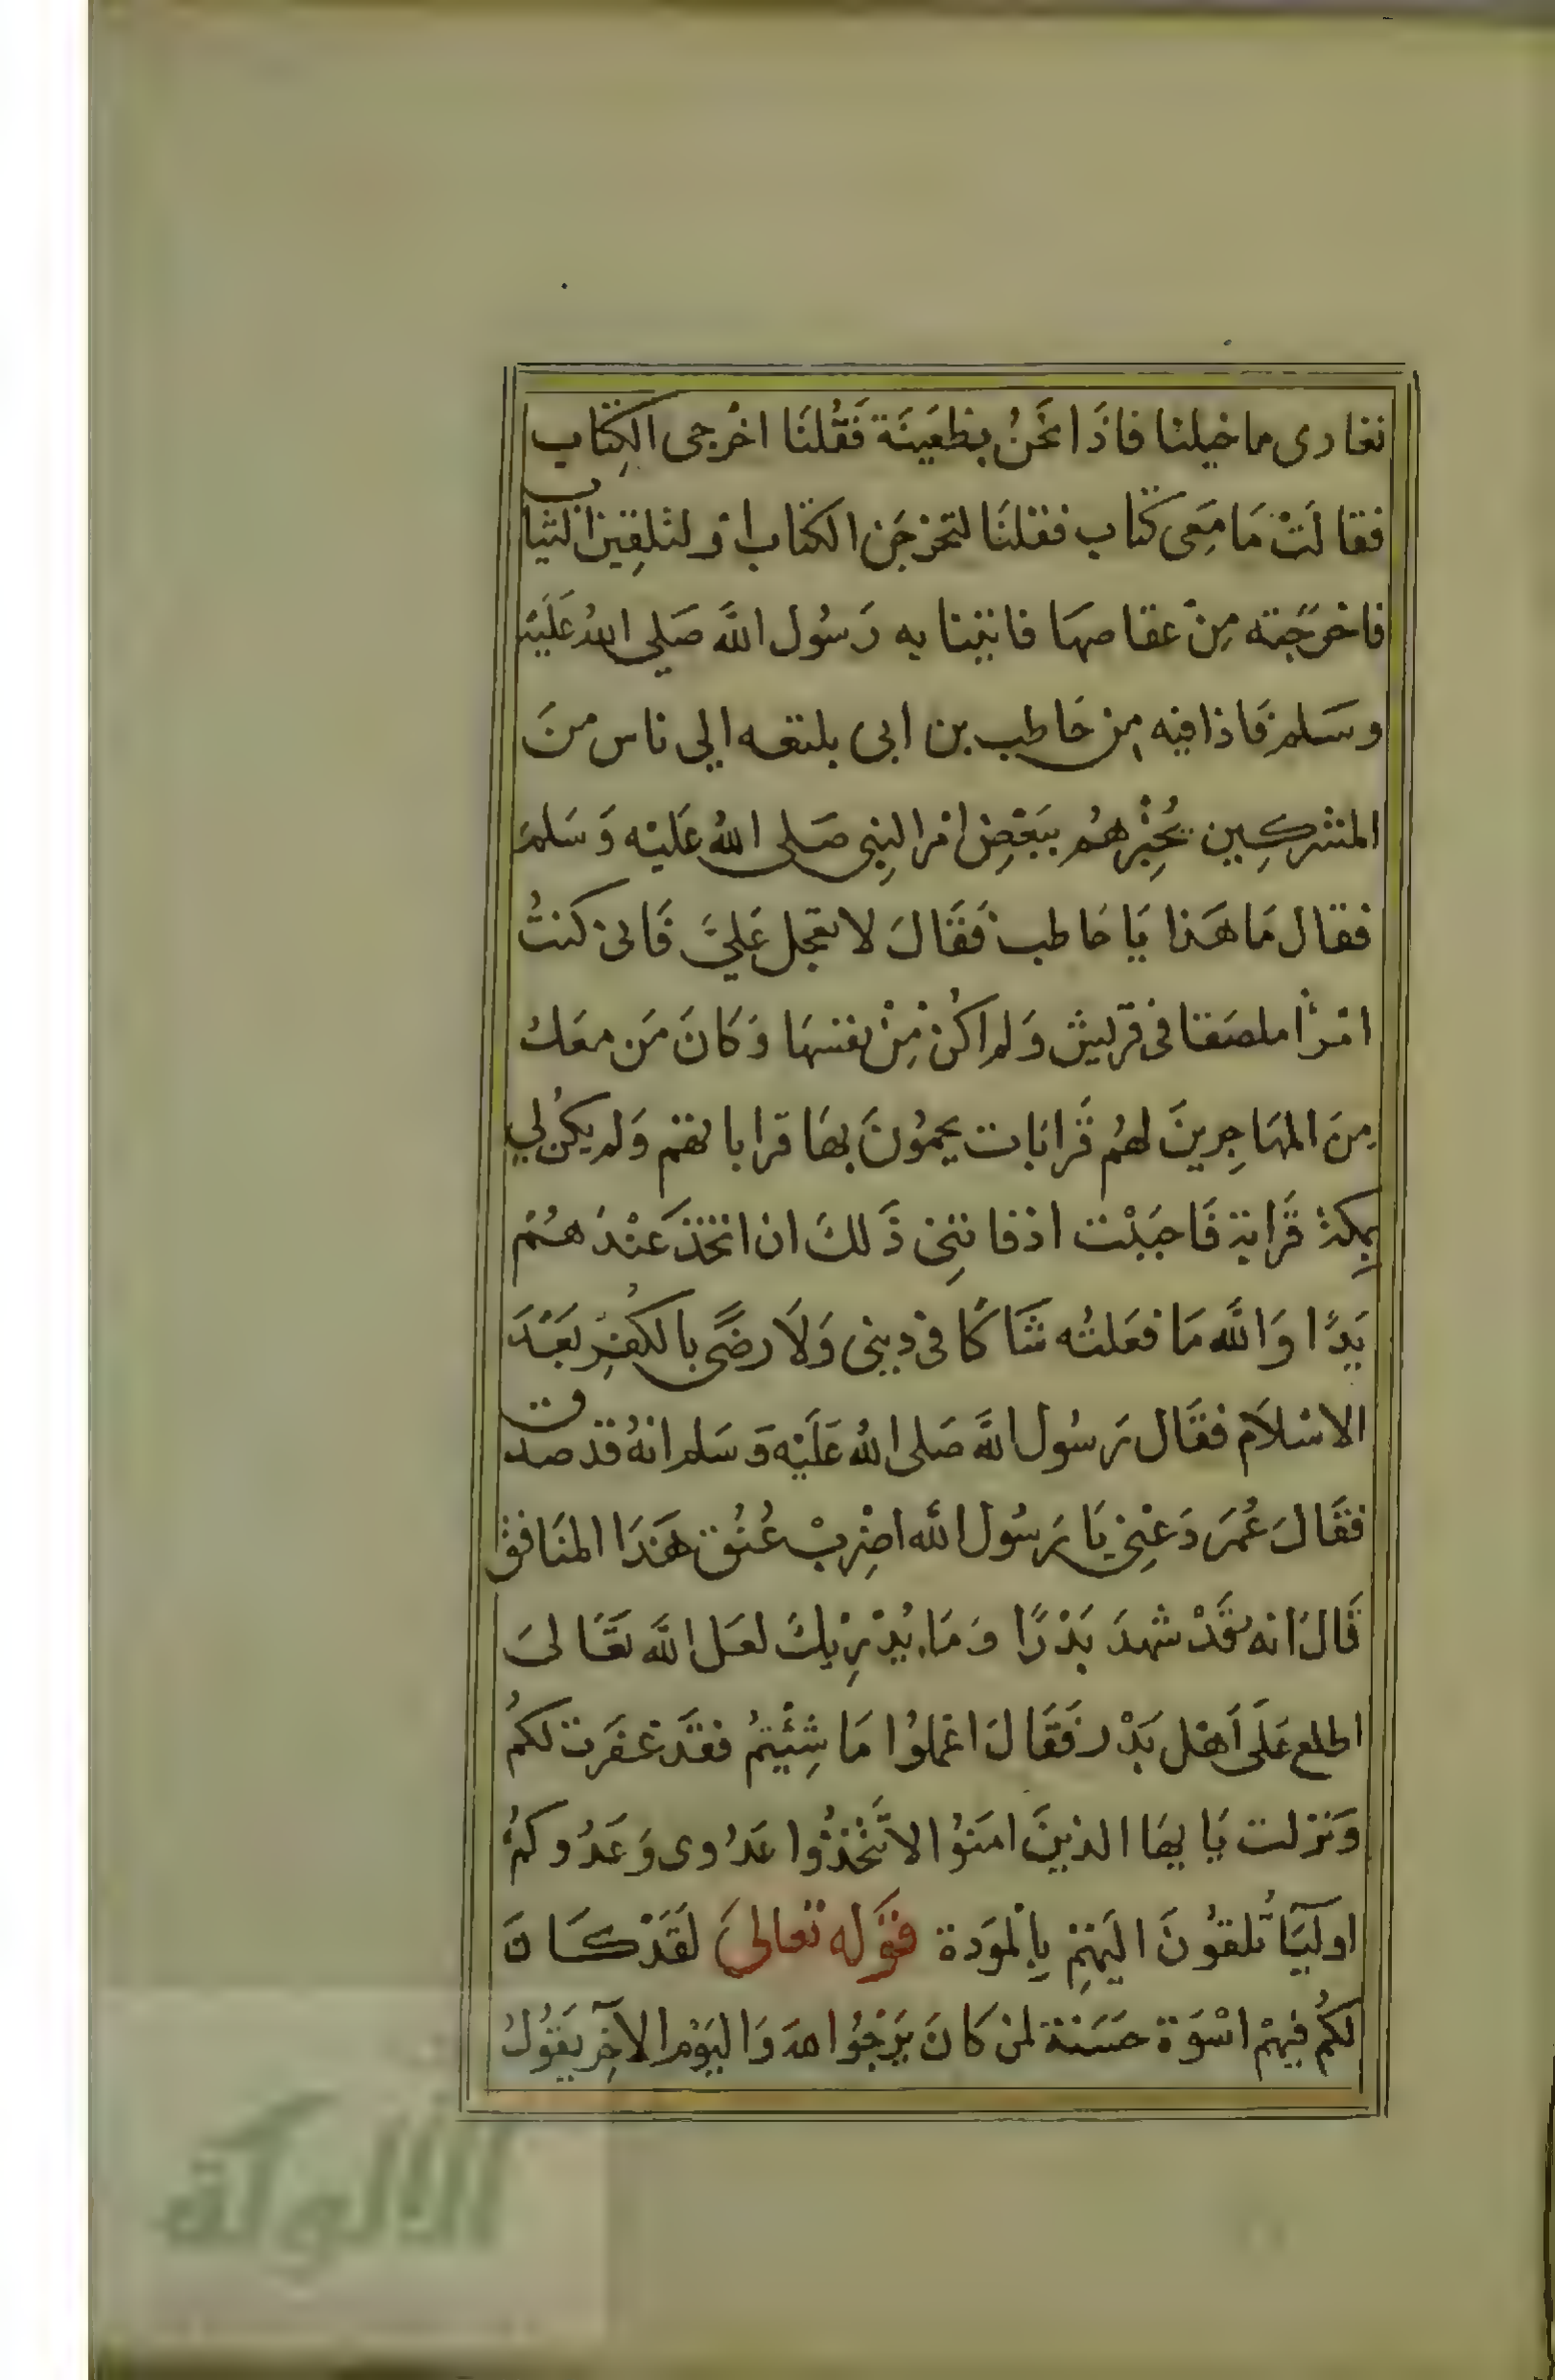 تعادى بنا خيلنا فاذَا نَحنُ بظعَينَة فَقُلنَا اخْرجى الكِتاب
فقالَتْ مَا مَعِى كتاب فقلنَا لتخرْجَن الكتاب اوْ لنلقِين الثياب
فاخرَجَته مِنْ عقاصهَا فاتينا به رَسُول اللَّه صَلى اللهُ عَلَيْه
وسَلم فَاذا فيْه مِن حَاطب بن ابى بلتعه الي ناس منَ
المشركِين يخْبِرهُم ببَعْضِ امْر النبِى صَلى اللهُ عَليْه وَسَلمَ
فقال مَا هَذا يَا حَاطب فَقَالَ لا تعجل عَليَّ فَانى كنتُ
امْرأ ملصَقا فى قريش وَلم اكُنْ مِنْ نفسهَا وَكَانَ مَن معَك
مِنَ المهَاجِرينَ لهُم قَرابَات يحموُنَ بهَا قراباتهم وَلم يكُن لي
بِمكة قَرابة فَاحبَبْت اذ فاتنِى ذَلكَ ان اتخذَ عنْدَهُمْ
يَدًا وَاللَّه مَا فعَلتُه شَاكًا فى دِينى وَلاَ رضًى بالكُفِر بَعْدَ
الاسْلاَم فقَال رَسُول اللَّه صَلى اللهُ عَلَيْه وَسَلم انهُ قد صدق
فقَالَ عُمَر دَعْنِى يَا رَسُول الله اضْرِبْ عُنُق هَذَا المنَافق
قَالَ انه لقَدْ شهدَ بَدْرًا وَمَا يُدْرِيْكَ لعَل اللَّه تعَالىَ
اطلع عَلَى اَهْل بَدْر فَقَالَ اعْملُوا مَا شِئْتمُ فقَدْ غفَرت لكُم
وَنزلت يَا ايهَا الذينَ امَنوُا لا تَتَّخذُوا عَدُوى وَعَدُوكمُ
اوليَآ تُلقوُنَ اليَهِمْ بِالْموَدة قوَله تعالىَ لَقَدْ كَانَ
لكُم فِيهْم اسْوَة حسَنة لمن كَانَ يَرْجُوا الله وَاليَوْم الآخِر يَقوُلُ
الألوكة